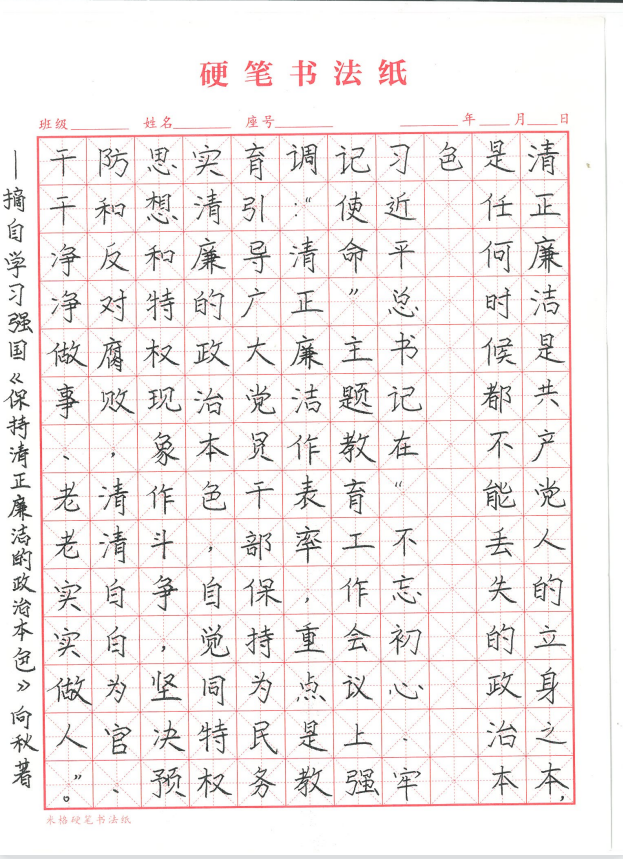 硬笔书法纸
班级 姓名 座号 年 月 日
清正廉洁是共产党人的立身之本，
是任何时候都不能丢失的政治本
色
习近平总书记在“不忘初心、牢
记使命”主题教育工作会议上强
调：“清正廉洁作表率，重点是教
育引导广大党员干部保持为民务
实清廉的政治本色，自觉同特权
思想和特权现象作斗争，坚决预
防和反对腐败，清清白白为官、
干干净净做事、老老实实做人”。
—摘自学习强国《保持清正廉洁的政治本色》向秋著
米格硬笔书法纸